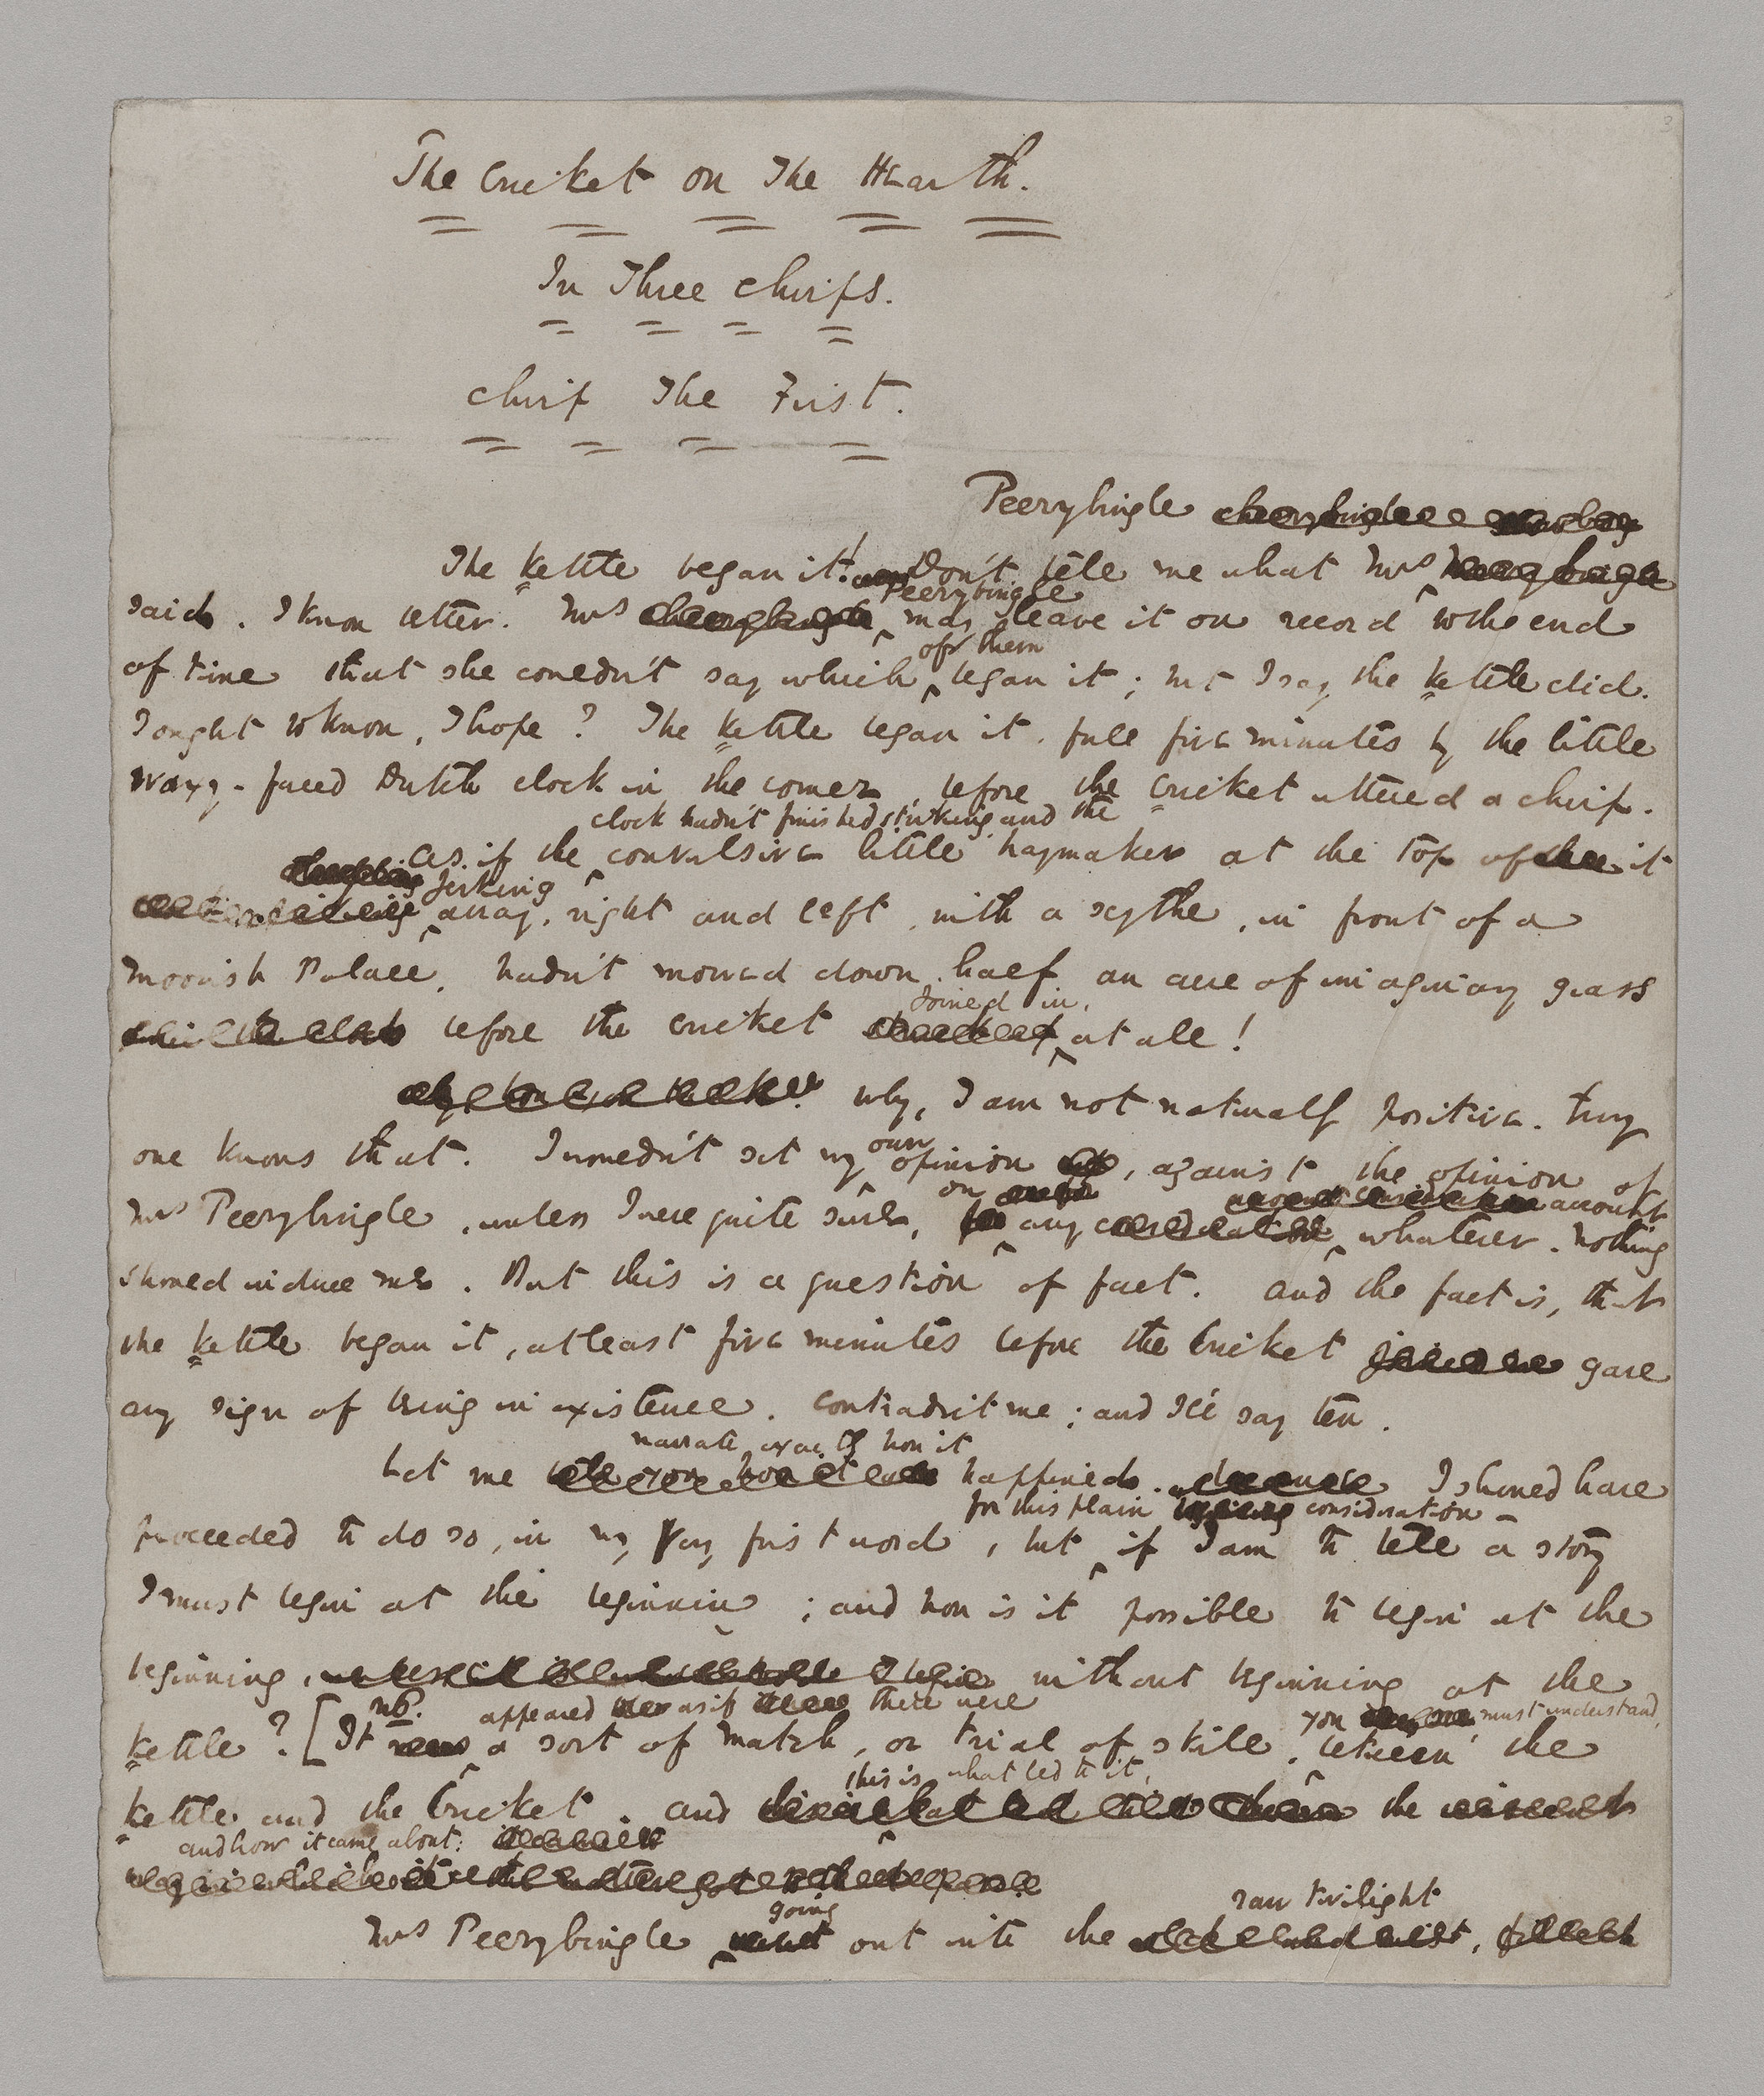 The Cricket on The Hearth.
In Three Chirps.
Chirp The First.
Peerybingle
The kettle began it! Don't tell me what Mrs
said. I know better. Mrs Peerybingle may leave it on record to the end
of time that she couldn't say which of them began it; but I say the kettle did.
I ought to know, I hope? The kettle began it, full five minutes by the little
waxy-faced Dutch clock in the corner before the Cricket uttered a chirp.
As if the clock hadn't finished striking, and the convulsive little haymaker at the top of it
jerking away, right and left, with a scythe, in front of a
Moorish Palace, hadn't mowed down half an acre of imaginary grass
before the Cricket joined in, at all!
Why, I am not naturally positive. Every
one knows that. I wouldn't set my own opinion, against the opinion of
Mrs Peerybingle, unless I were quite sure, on any account whatever. Nothing
should induce me. But this is a question of fact. And the fact is, that
the kettle began it, at least five minutes before the Cricket gave
any sign of being in existence. Contradict me; and I'll say ten.
Let me narrate exactly how it happened. I should have
proceeded to do so, in my very first word, but for this plain consideration – if I am to tell a story
I must begin at the beginning; and how is it possible to begin at the
beginning, without beginning at the
kettle? [NB. It appeared as if there were a sort of match, or trial of skill, you must understand, between the
kettle and the Cricket. And this is what led to it,
and how it came about:
Mrs Peerybingle going out into the raw twilight